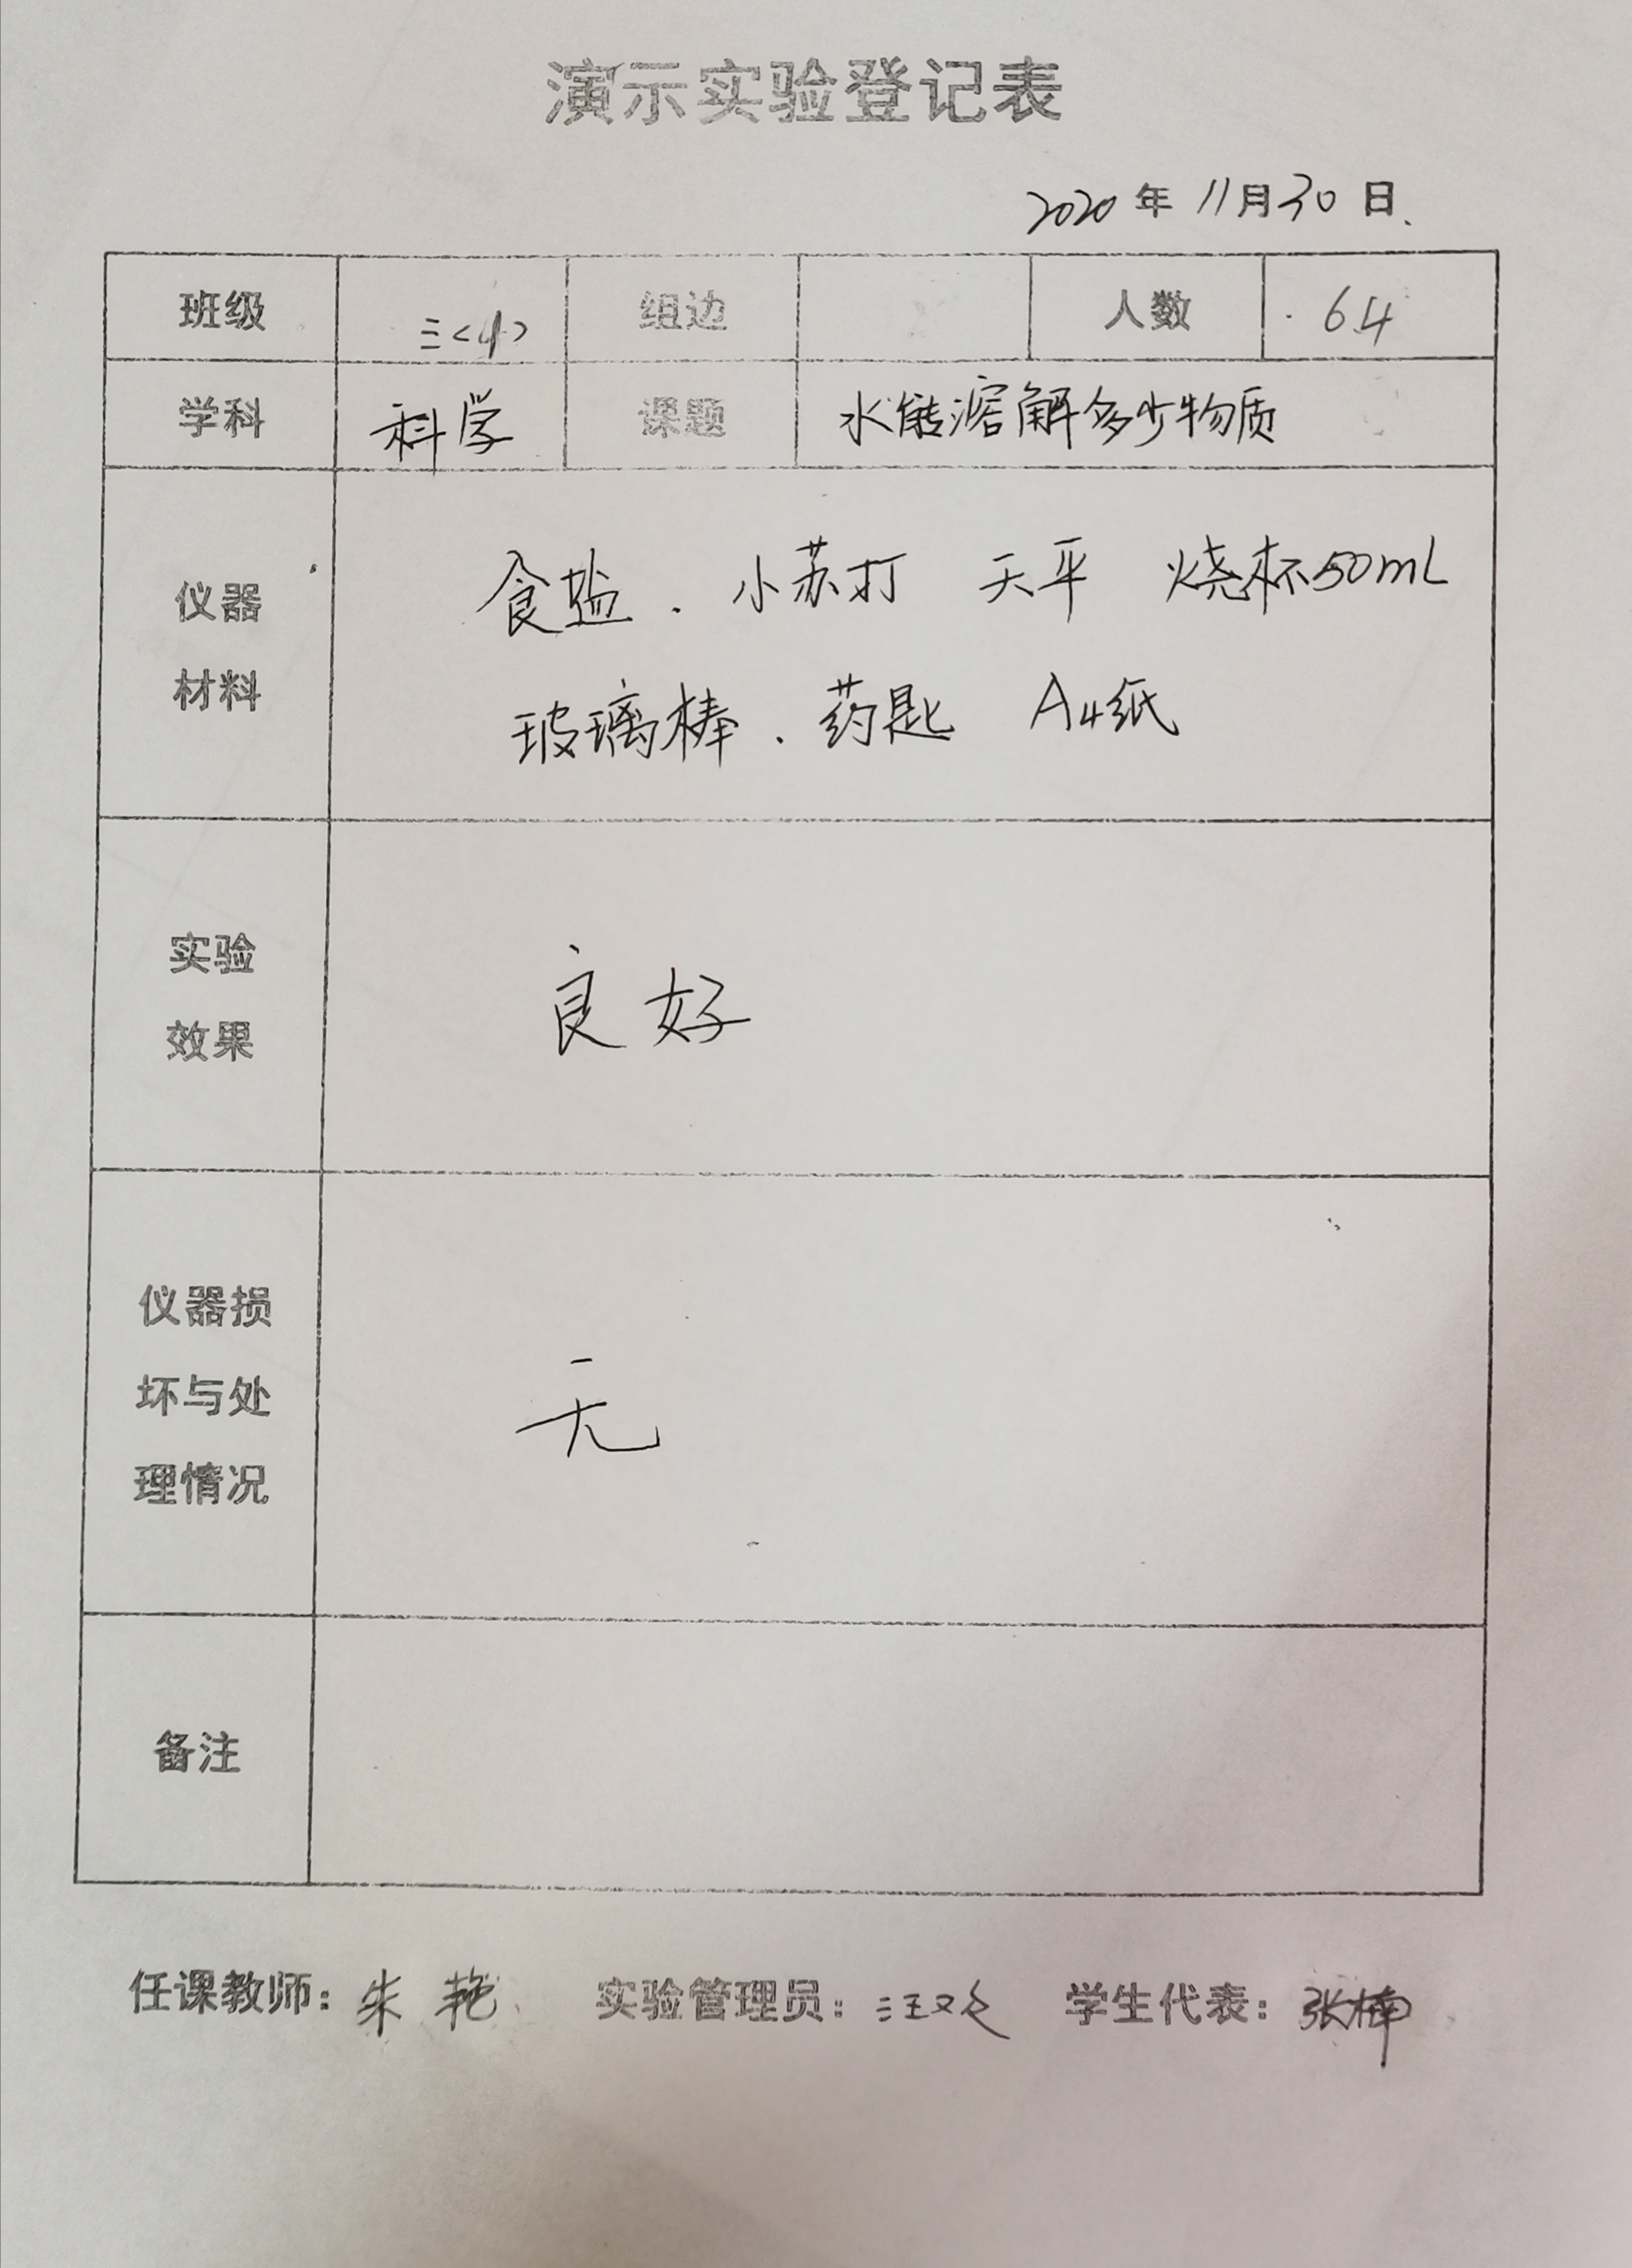 演示实验登记表
2020年11月30日
班级 三<4> 组边 人数 64
学科 科学 课题 水能溶解多少物质
仪器
材料
食盐．小苏打 天平 烧杯50mL
玻璃棒．药匙 A4纸
实验
效果
良好
仪器损
坏与处
理情况
无
备注
任课教师：朱艳 实验管理员：汪 学生代表：张楠